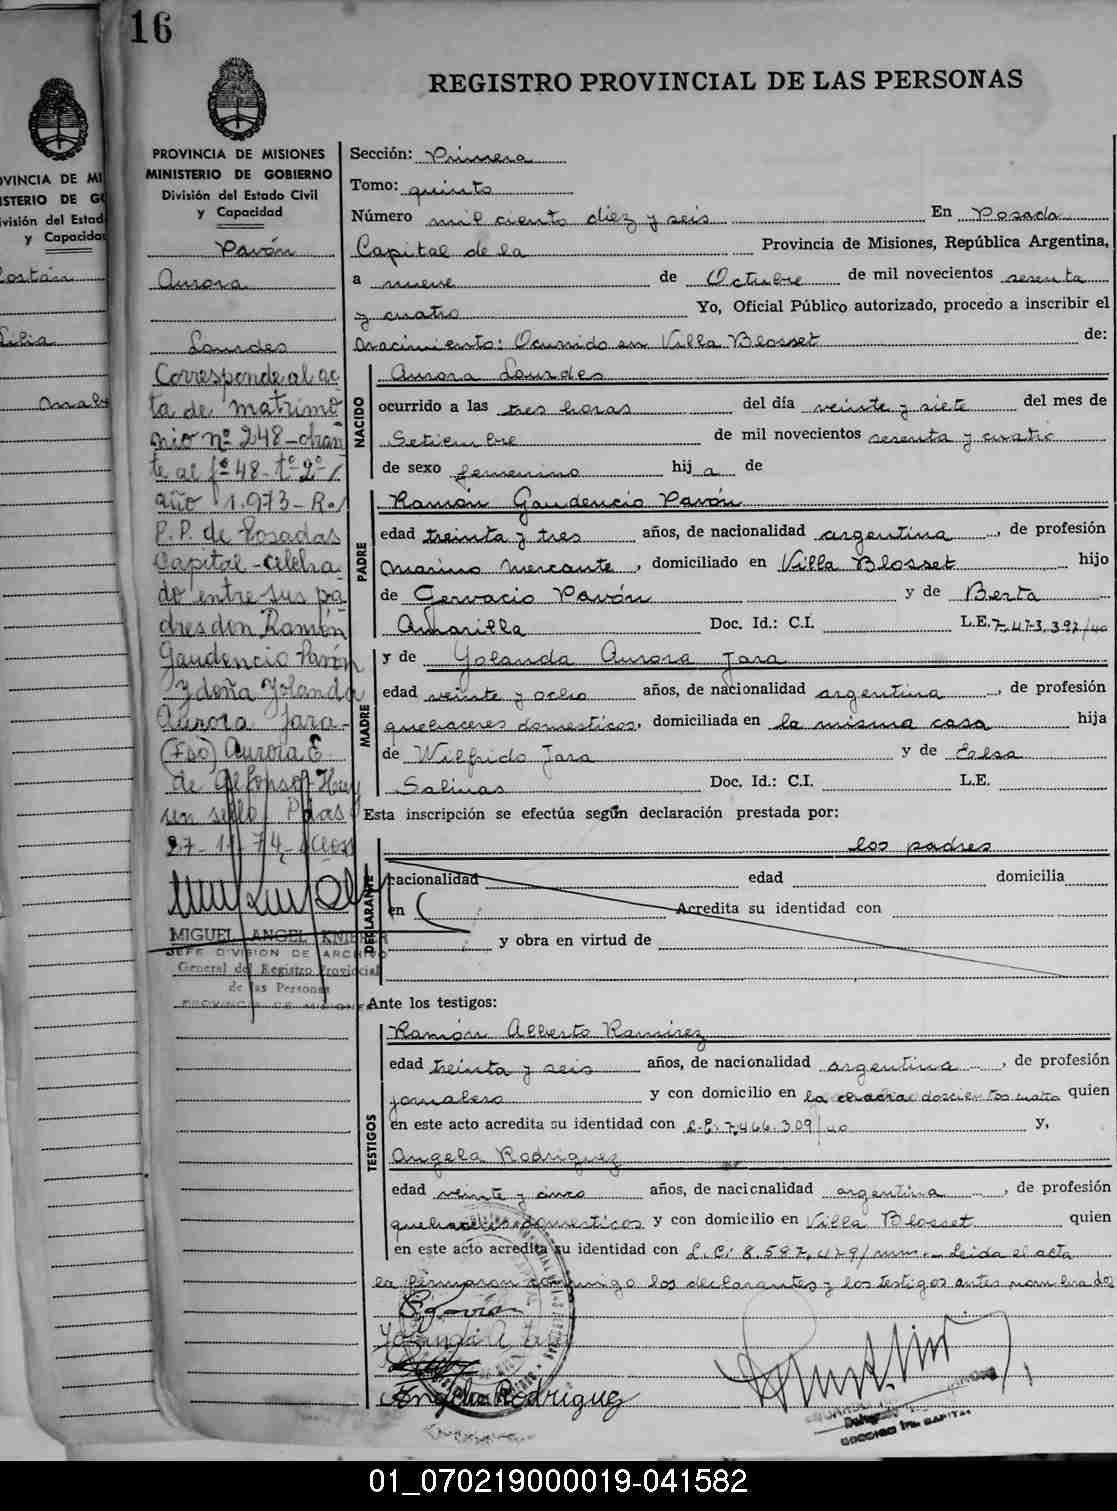 16
REGISTRO PROVINCIAL DE LAS PERSONAS
PROVINCIA DE MISIONES
MINISTERIO DE GOBIERNO
División del Estado Civil
y Capacidad
Pavón
Aurora
Lourdes
Corresponde al ac
ta de matrimo
nio nº 248-obran
te al fº 48- tº 2º/
año 1.973- R./
P.P. de Posadas
Capital-celebra
do entre sus pa
dres don Ramón
Gaudencio Pavón
y doña Yolanda
Aurora Jara-
(Fdo) Aurora E
de Alfonso- Hay
un sello Pdas
27-11-74
MIGUEL ANGEL
JEFE DIVISION DE ARCHIVO
General del Registro Provincial
de las Personas
PROVINCIA DE MISIONES
Sección: Primera
Tomo: quinto
Número mil ciento diez y seis En Posada
Capital de la Provincia de Misiones, República Argentina,
a nueve de Octubre de mil novecientos sesenta
y cuatro Yo, Oficial Público autorizado, procedo a inscribir el
nacimiento: Ocurrido en Villa Blosset de:
NACIDO
Aurora Lourdes
ocurrido a las tres horas del día veinte y siete del mes de
Setiembre de mil novecientos sesenta y cuatro
de sexo femenino hij a de
PADRE
Ramón Gaudencio Pavón
edad treinta y tres años, de nacionalidad argentina, de profesión
Marino Mercante, domiciliado en Villa Blosset hijo
de Gervacio Pavón y de Berta
Amarilla Doc. Id.: C.I. L.E. 7.473.397/40
MADRE
y de Yolanda Aurora Jara
edad veinte y ocho años, de nacionalidad argentina, de profesión
quehaceres domesticos, domiciliada en la misma casa hija
de Wilfrido Jara y de Eelsa
Salinas Doc. Id.: C.I. L.E.
Esta inscripción se efectúa según declaración prestada por:
DECLARANTE
los padres
nacionalidad edad domicilia
en Acredita su identidad con
y obra en virtud de
Ante los testigos:
TESTIGOS
Ramón Alberto Ramirez
edad treinta y seis años, de nacionalidad argentina, de profesión
jornalero y con domicilio en la chacra doscientos cuatro quien
en este acto acredita su identidad con L.E. 7.466.309/40 y,
Angela Rodriguez
edad veinte y cinco años, de nacionalidad argentina, de profesión
quehaceres domesticos y con domicilio en Villa Blosset quien
en este acto acredita su identidad con L.C. 8.597.479/ mnes. Leida el acta
la firmaron conmigo los declarantes y los testigos antes nombrados
Angela Rodriguez
01_070219000019-041582